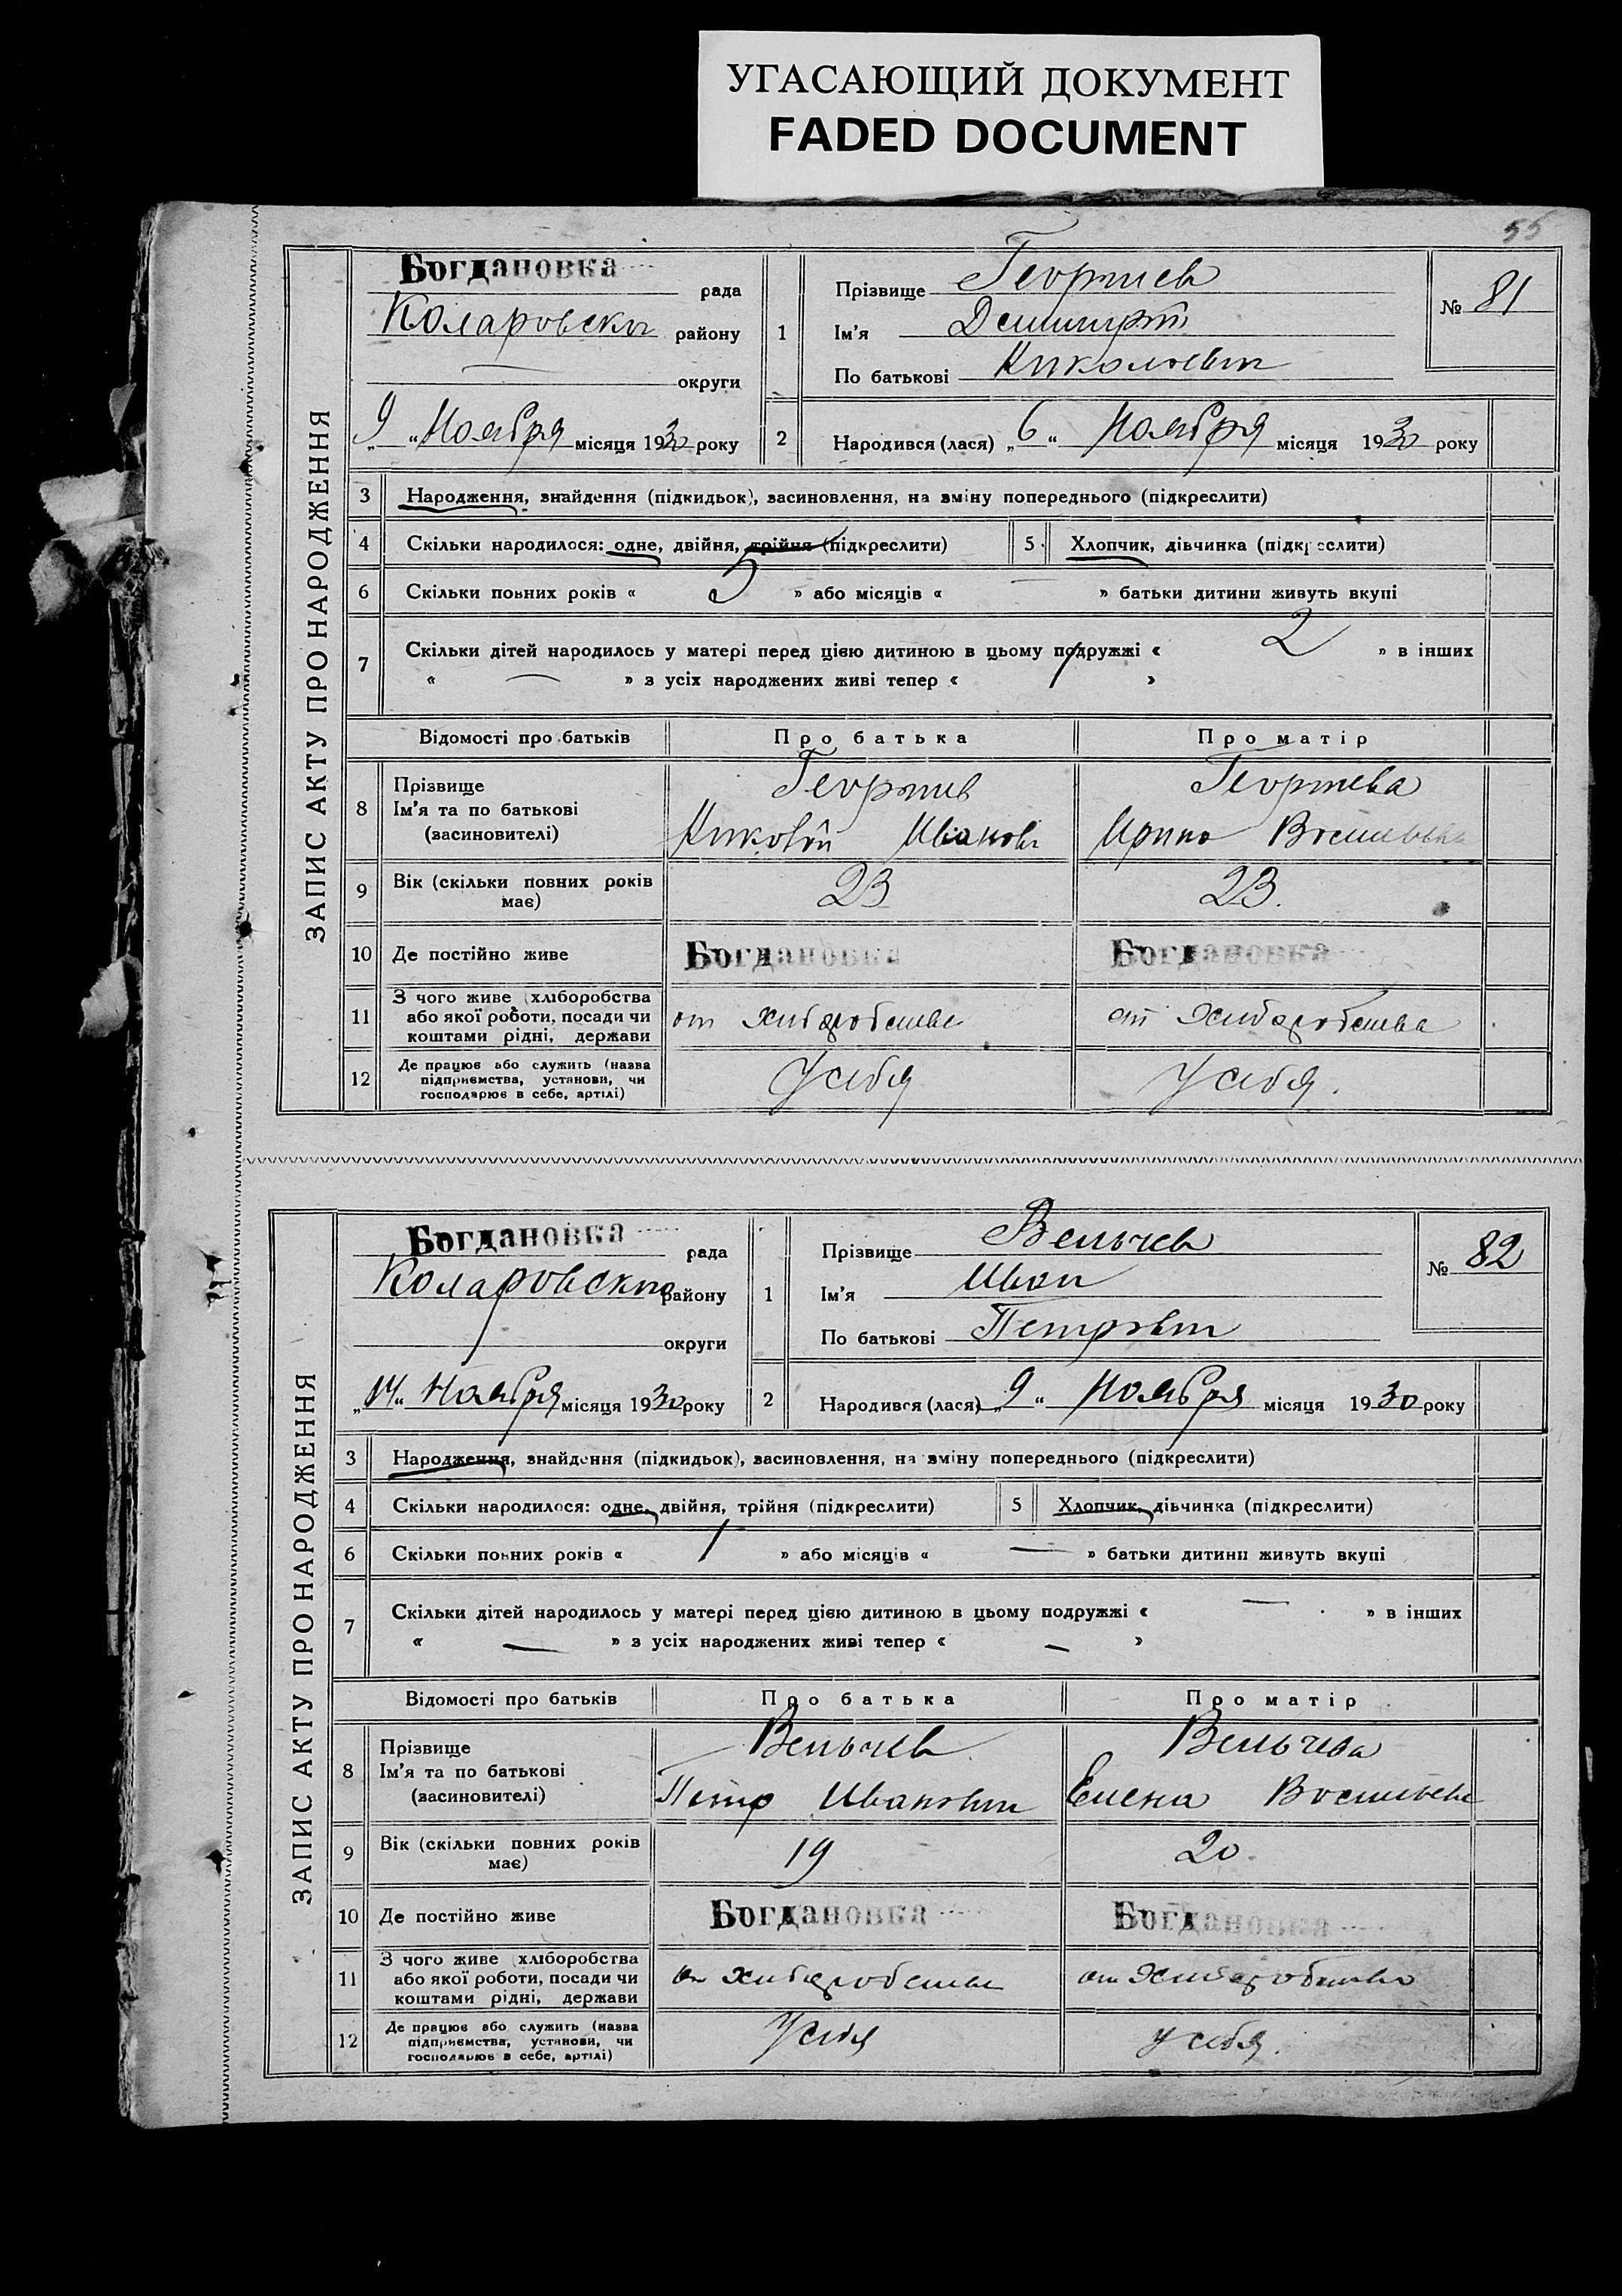 УГАСАЮЩИЙ ДОКУМЕНТ
FADED DOCUMENT
55
ЗАПИС АКТУ ПРО НАРОДЖЕННЯ
Богдановка рада
Коларовски району
— округи
„9“ Ноября місяця 1930 року
1 Прізвище Георгиев
Ім'я Дмитрий
По батькові Николаевич
№ 81
2 Народився (лася) „6“ Ноября місяця 1930 року
3 Народження, знайдення (підкидьок), засиновлення, на зміну попереднього (підкреслити)
4 Скільки народилося: одне, двійня, трійня (підкреслити) 5 Хлопчик, дівчинка (підкреслити)
6 Скільки повних років « 5 » або місяців « — » батьки дитини живуть вкупі
7 Скільки дітей народилось у матері перед цією дитиною в цьому подружжі « 2 » в інших
« — » з усіх народжених живі тепер « 1 »
Відомості про батьків Про батька Про матір
8 Прізвище Георгиев Георгиева
Ім'я та по батькові
(засиновителі) Николай Иванов Ирина Васильевна
9 Вік (скільки повних років має) 23 23.
10 Де постійно живе Богдановка Богдановка
11 З чого живе (хліборобства
або якої роботи, посади чи
коштами рідні, держави от хлиборобства от хлиборобства
12 Де працює або служить (назва
підприємства, установи, чи
господарює в себе, артілі) У себя У себя.
ЗАПИС АКТУ ПРО НАРОДЖЕННЯ
Богдановка рада
Коларовского району
округи
„14“ Ноября місяця 1930 року
1 Прізвище Вельчев
Ім'я Иван
По батькові Петрович
№ 82
2 Народився (лася) „9“ Ноября місяця 1930 року
3 Народження, знайдення (підкидьок), засиновлення, на зміну попереднього (підкреслити)
4 Скільки народилося: одне, двійня, трійня (підкреслити) 5 Хлопчик, дівчинка (підкреслити)
6 Скільки повних років « 1 » або місяців « — » батьки дитини живуть вкупі
7 Скільки дітей народилось у матері перед цією дитиною в цьому подружжі « — » в інших
« — » з усіх народжених живі тепер « — »
Відомості про батьків Про батька Про матір
8 Прізвище Вельчев Вельчева
Ім'я та по батькові
(засиновителі) Петр Иванович Елена Васильевна
9 Вік (скільки повних років має) 19 20.
10 Де постійно живе Богдановка Богдановка
11 З чого живе (хліборобства
або якої роботи, посади чи
коштами рідні, держави от хлиборобства от хлиборобства
12 Де працює або служить (назва
підприємства, установи, чи
господарює в себе, артілі) У себя у себя.